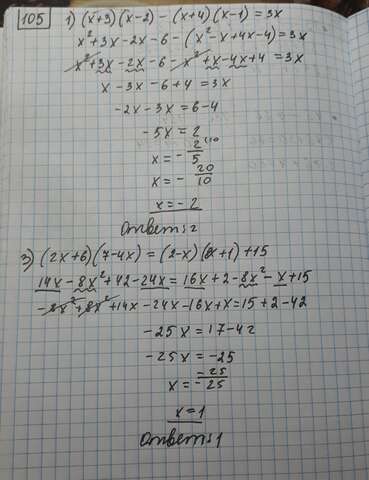 105 1) (x+3)(x-2) - (x+4)(x-1) = 3x
x²+3x-2x-6-(x²-x+4x-4)=3x
x²+3x-2x-6-x²+x-4x+4=3x
x-3x-6+4=3x
-2x-3x=6-4
-5x=2
x=-2/5
x=-20/10
x=-2
Ответ: 2
3) (2x+6)(7-4x) = (2-x)(8x+1)+15
14x-8x²+42-24x=16x+2-8x²-x+15
-8x²+8x²+14x-24x-16x+x=15+2-42
-25x=17-42
-25x=-25
x=-25/-25
x=1
Ответ: 1